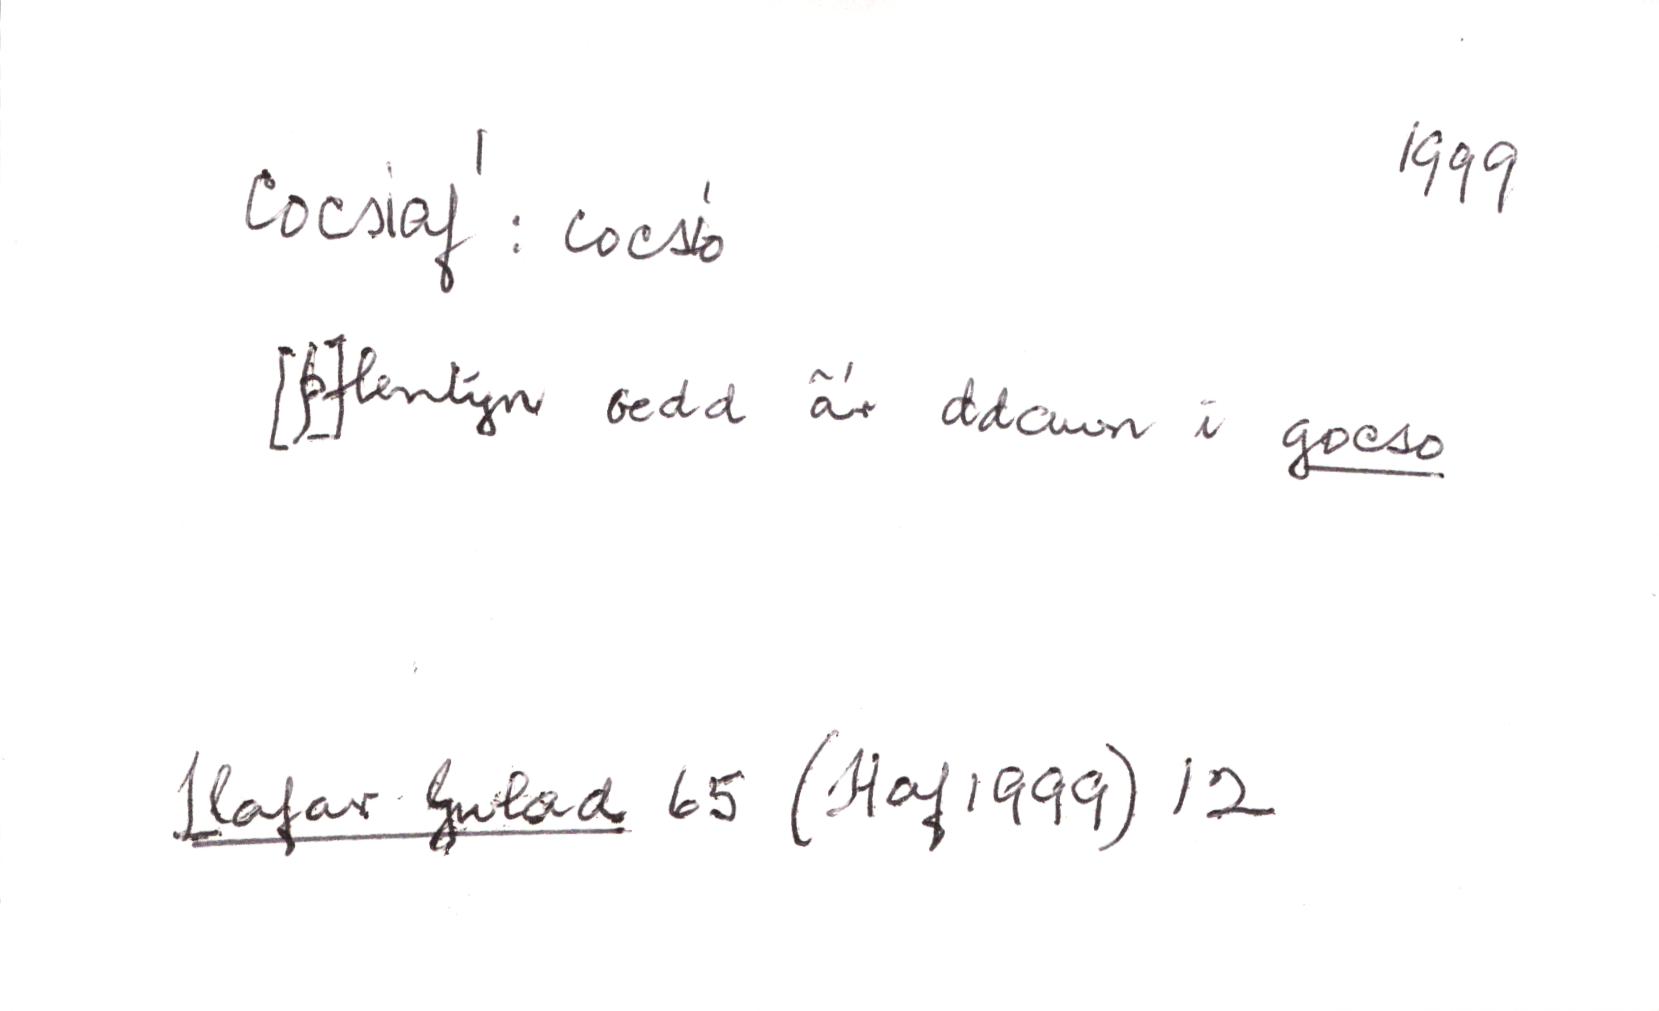 1999
Cocsiaf¹ : cocsio
[p]lentyn oedd â'r ddawn i gocso
Llafar Gwlad 65 (Haf 1999) 12